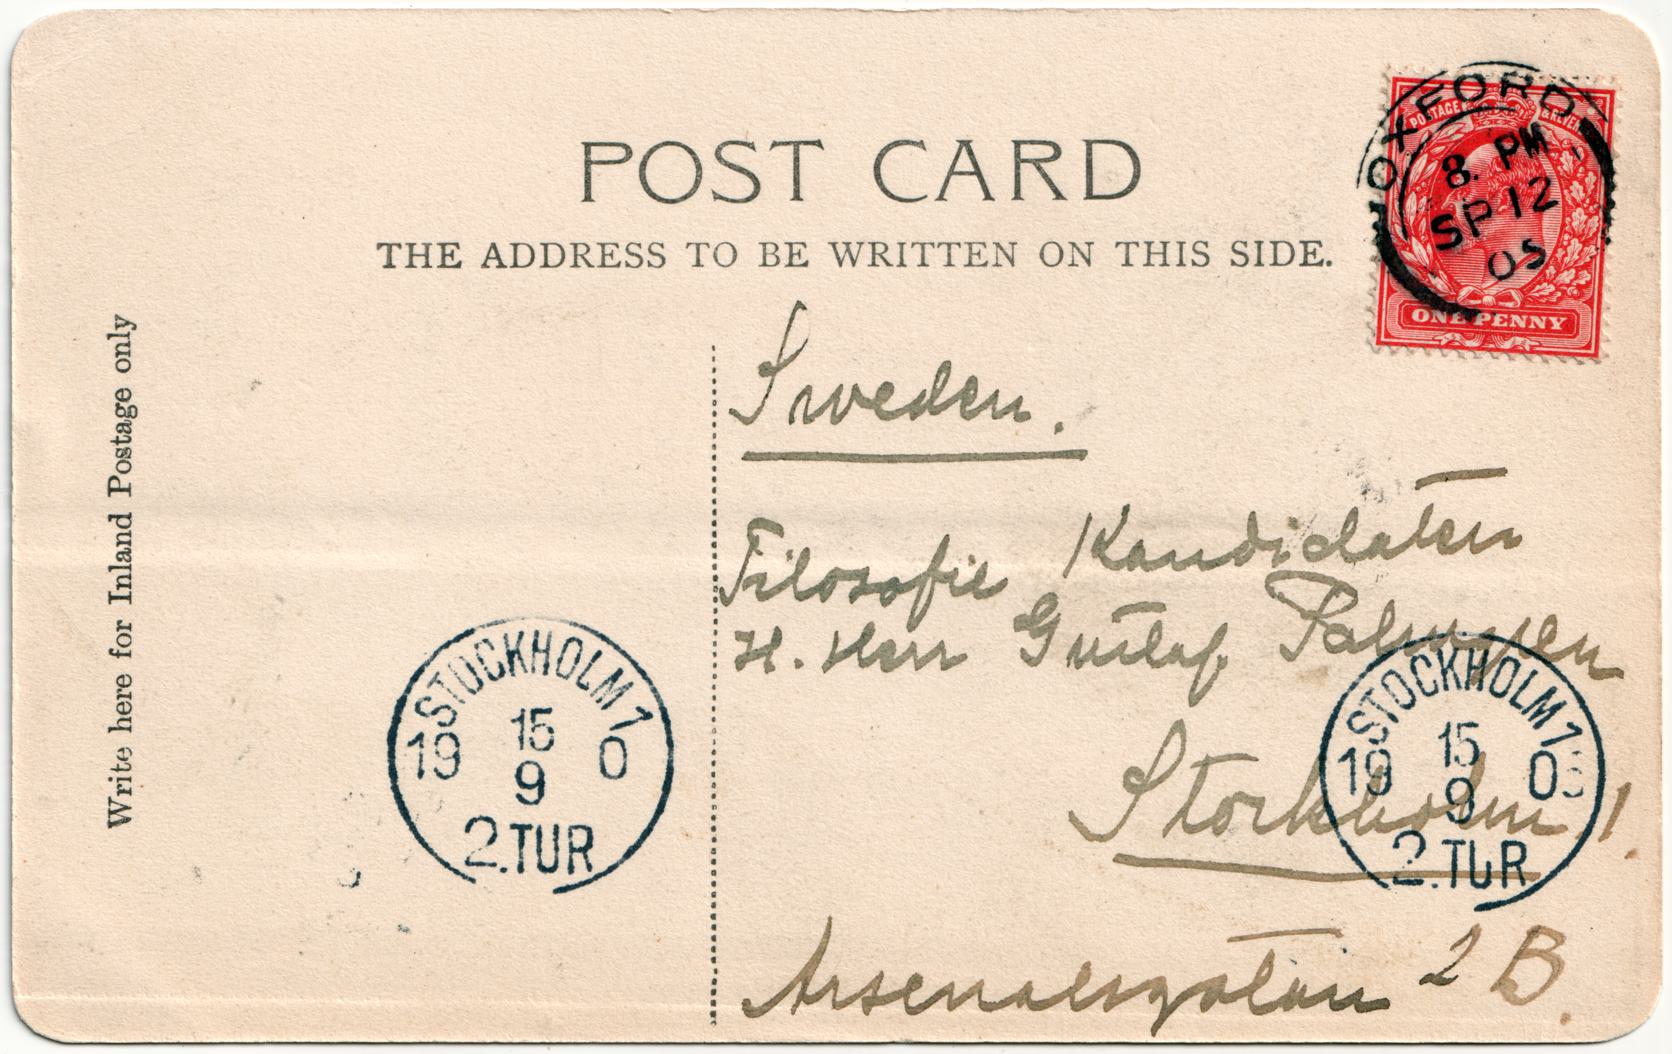 POST CARD
THE ADDRESS TO BE WRITTEN ON THIS SIDE.
Write here for Inland Postage only
POSTAGE & REVENUE
ONE PENNY
OXFORD
8. PM
SP 12
05
Sweden.
Filosofie Kandidaten
H. Herr Gustaf Palmgren
Stockholm 1
Arsenalsgatan 2 B.
STOCKHOLM 1
15
19 0
9
2.TUR
STOCKHOLM 1
15
19 05
9
2.TUR